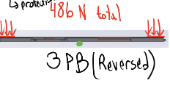 ↳ protein
486 N total
3 PB (Reversed)